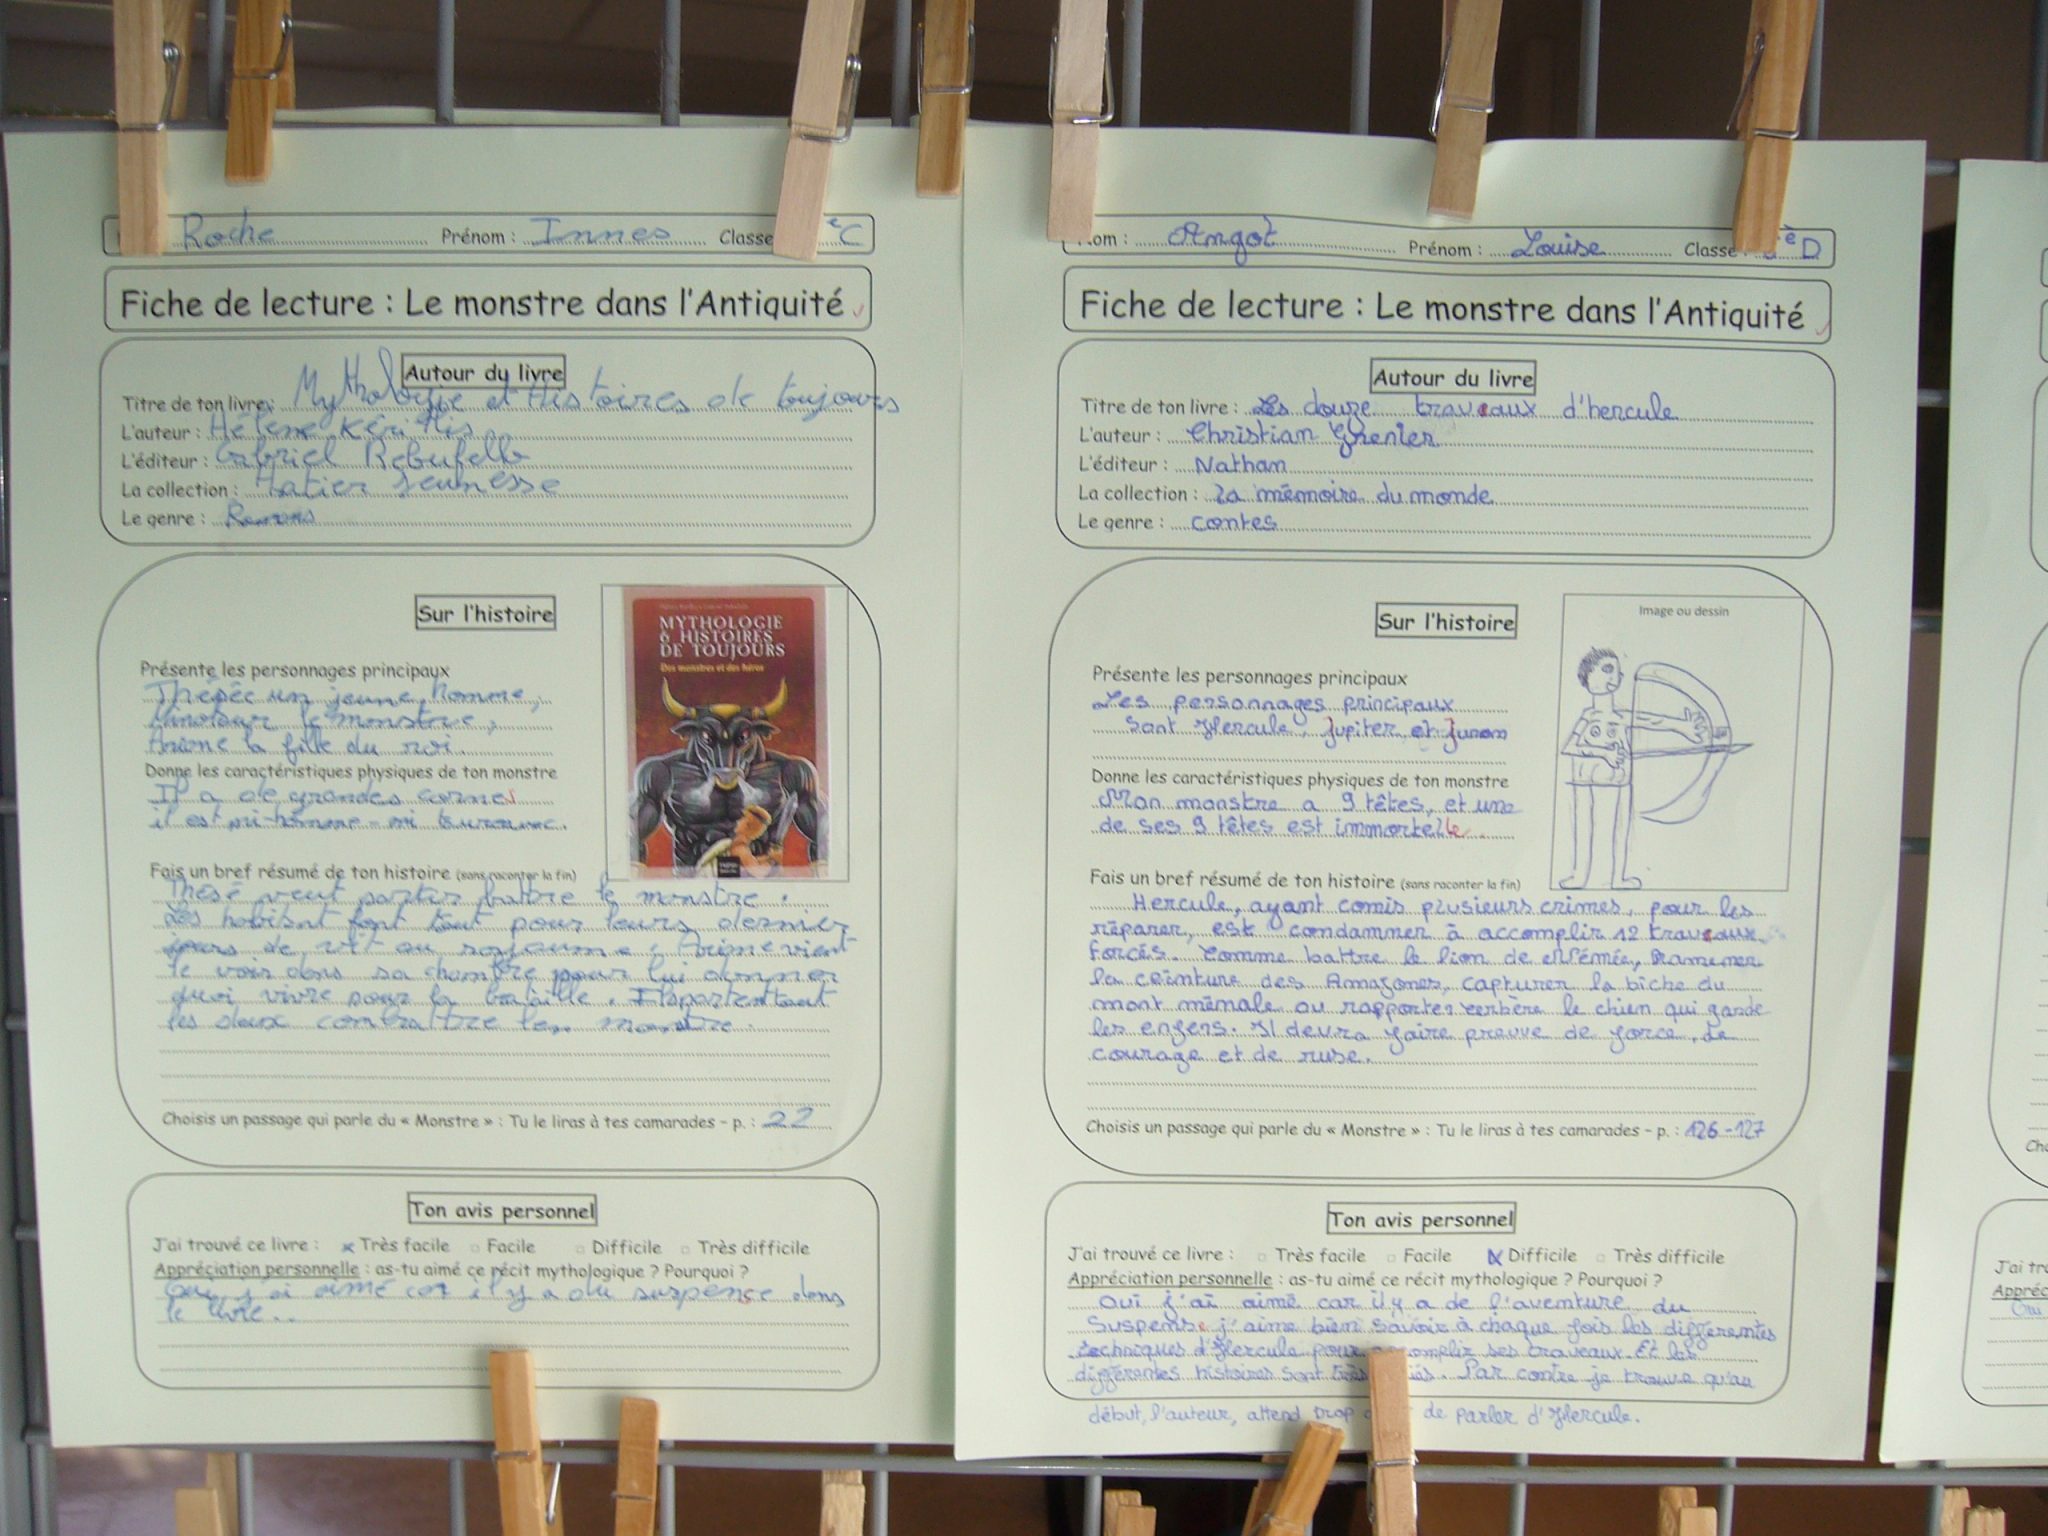 Roche Prénom : Innes Classe èC
Fiche de lecture : Le monstre dans l'Antiquité
Autour du livre
Titre de ton livre : Mythologie et Histoires de toujours
L'auteur : Hélène Kérillis
L'éditeur : Gabriel Rebufello
La collection : Hatier jeunesse
Le genre : Romans
Sur l'histoire
MYTHOLOGIE
& HISTOIRES
DE TOUJOURS
Des monstres et des héros
Présente les personnages principaux
un jeune homme,
le monstre,
la fille du roi.
Donne les caractéristiques physiques de ton monstre
Il a de grandes cornes
il est mi-homme - mi
Fais un bref résumé de ton histoire (sans raconter la fin)
Thésé veut partir battre le monstre.
Les font tout pour leurs dernier
jours de vit au royaume. vient
le voir dans sa chambre pour lui donner
quoi vivre pour la bataille. Ils partent tout
les deux combattre le monstre.
Choisis un passage qui parle du « Monstre » : Tu le liras à tes camarades - p. : 22
Ton avis personnel
J'ai trouvé ce livre : x Très facile Facile Difficile Très difficile
Appréciation personnelle : as-tu aimé ce récit mythologique ? Pourquoi ?
Oui, j'ai aimé car il y a du suspence dans
le livre..
Nom : Angot Prénom : Louise Classe èD
Fiche de lecture : Le monstre dans l'Antiquité
Autour du livre
Titre de ton livre : Les douze traveaux d'hercule
L'auteur : Christian Grenier
L'éditeur : Nathan
La collection : La mémoire du monde
Le genre : contes
Sur l'histoire
Image ou dessin
Présente les personnages principaux
Les personnages principaux
sont Hercule, Jupiter et Junon
Donne les caractéristiques physiques de ton monstre
Mon monstre a 9 têtes, et une
de ses 9 têtes est immortelle
Fais un bref résumé de ton histoire (sans raconter la fin)
Hercule, ayant comis plusieurs crimes, pour les
réparer, est condamner à accomplir 12 traveaux
forcés. Comme battre le lion de Némée, ramener
la ceinture des Amazones, capturer la biche du
mont ménale ou rapporter cerbère le chien qui garde
les enfers. Il devra faire preuve de force, de
courage et de ruse.
Choisis un passage qui parle du « Monstre » : Tu le liras à tes camarades - p. : 126-127
Ton avis personnel
J'ai trouvé ce livre : Très facile Facile x Difficile Très difficile
Appréciation personnelle : as-tu aimé ce récit mythologique ? Pourquoi ?
Oui j'ai aimé car il y a de l'aventure du
suspense j'aime bien savoir à chaque fois les differentes
techniques d'Hercule pour accomplir ses traveaux. Et les
différentes histoires sont très. Par contre je trouve qu'au
début, l'auteur, attend trop de parler d'Hercule.
J'ai